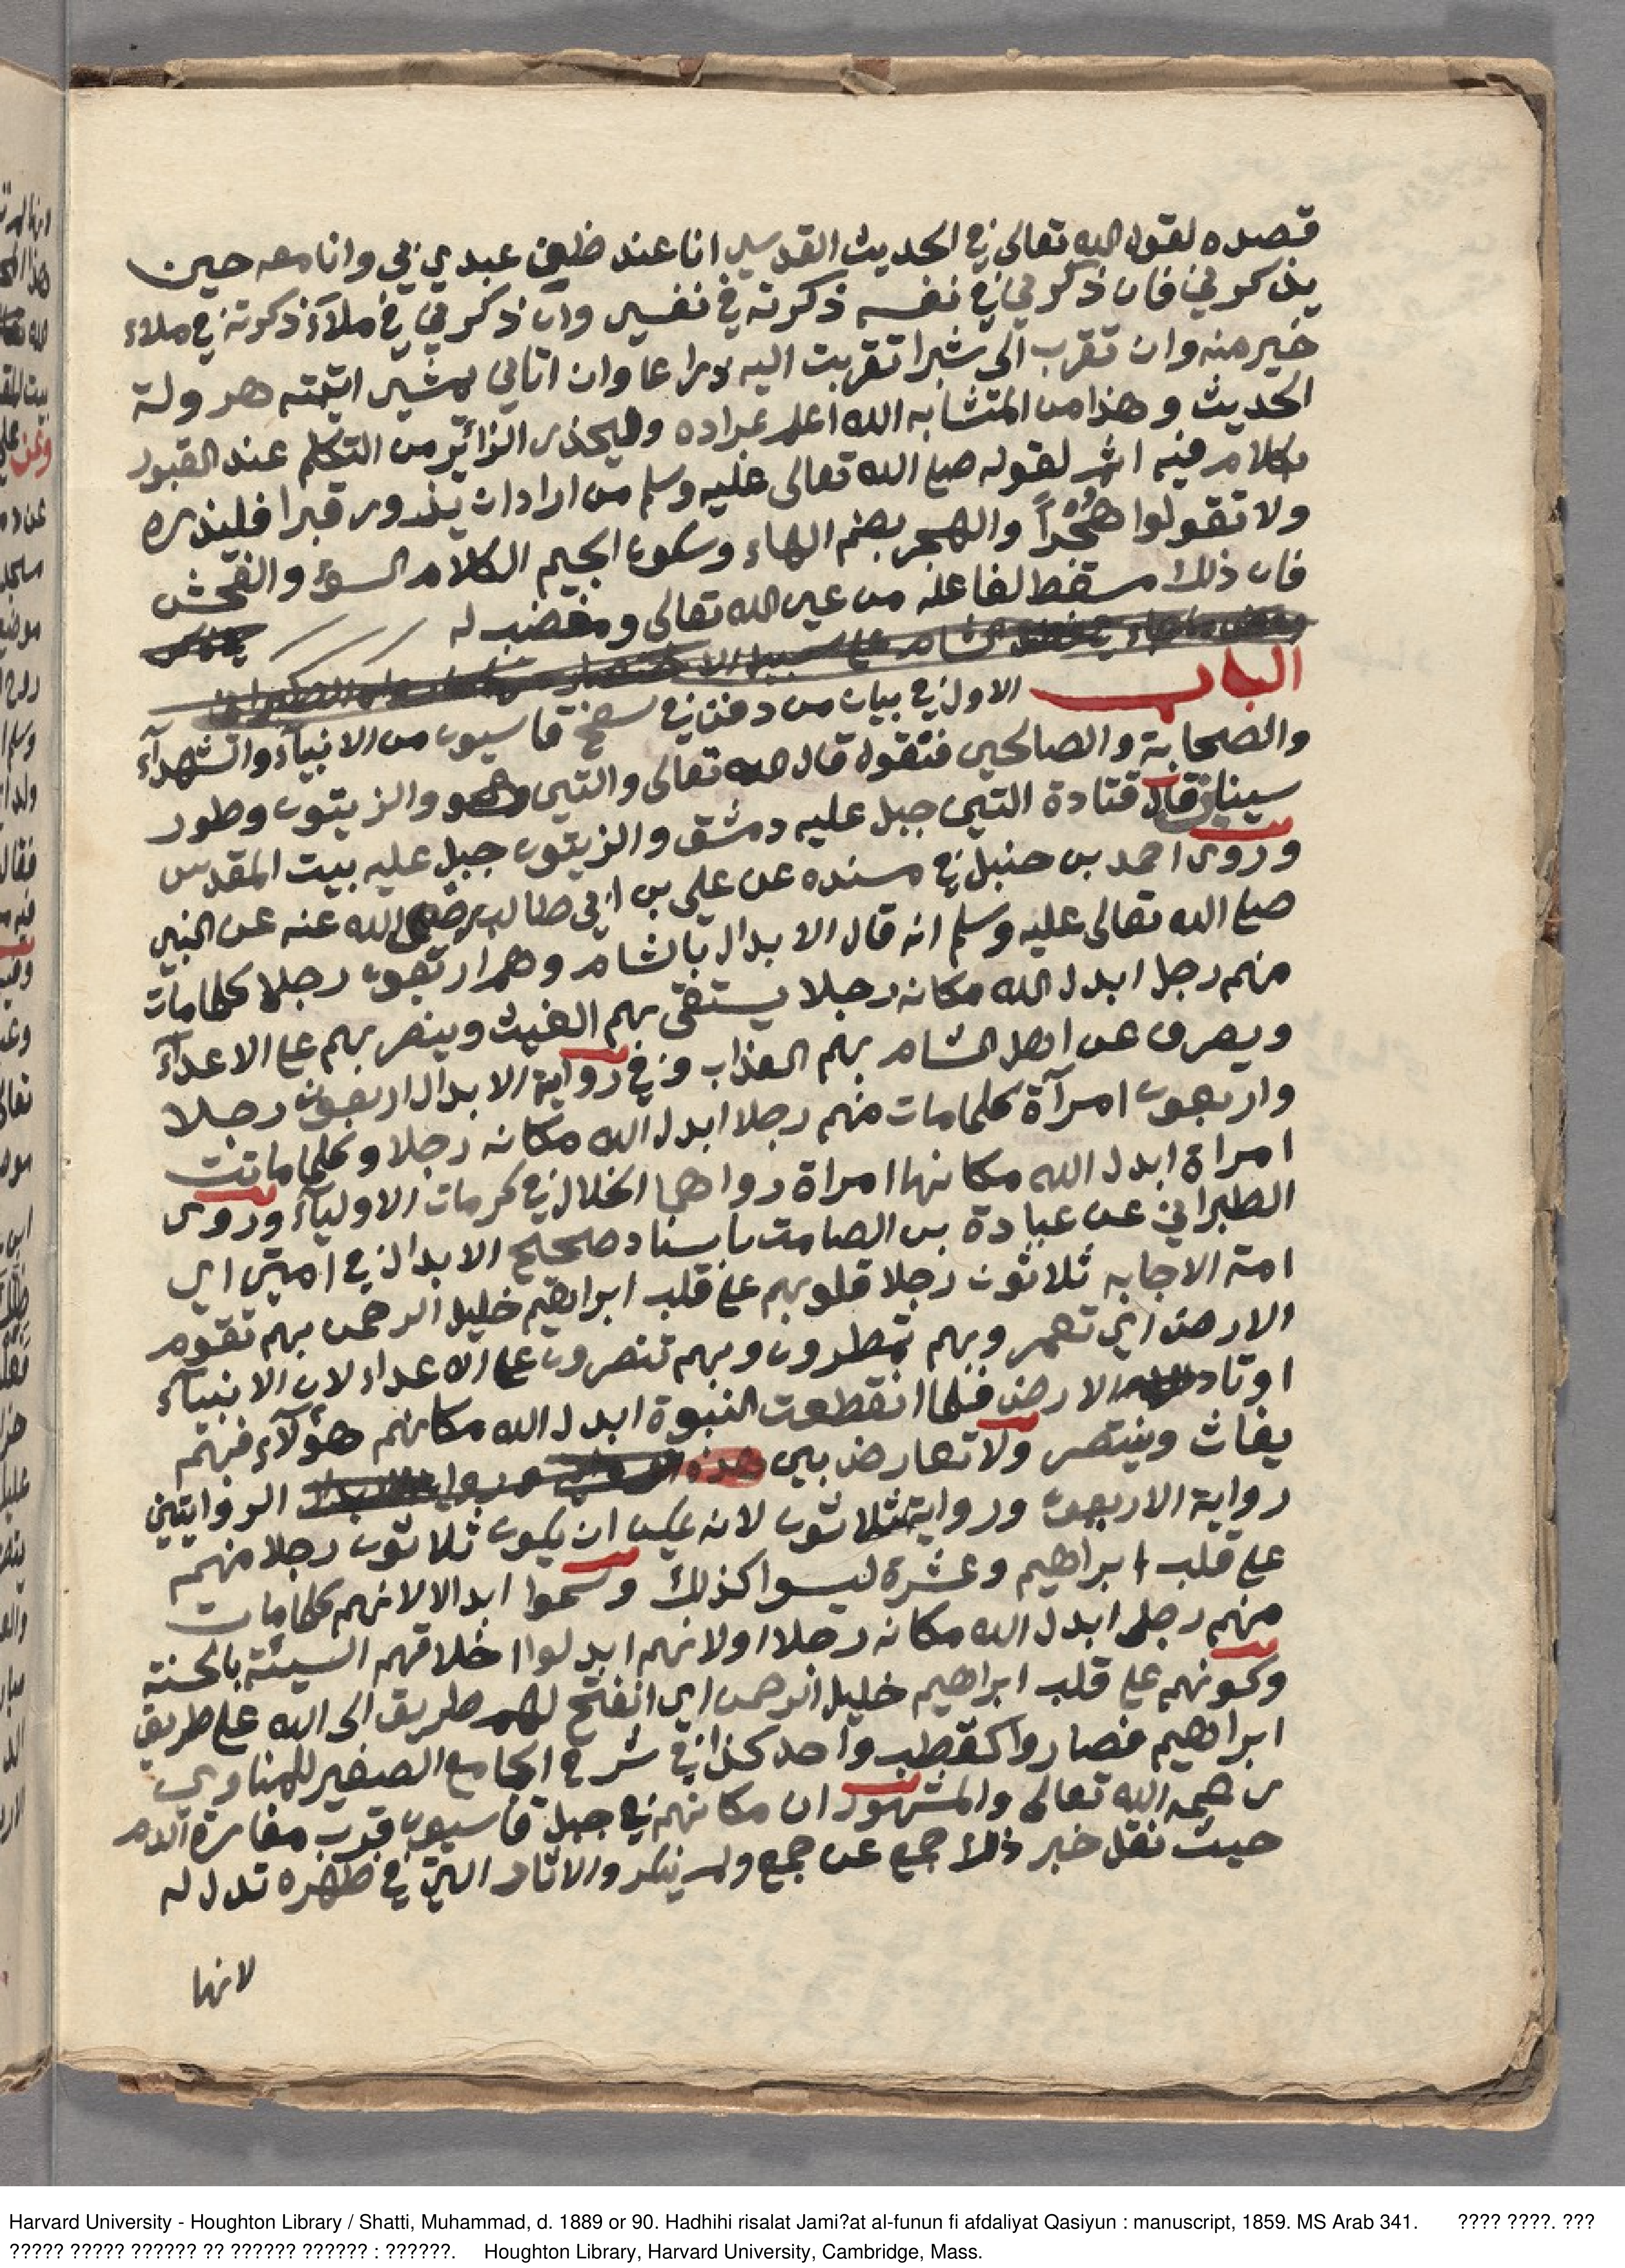 قصده لقول الله تعالى في الحديث القدسي انا عند ظن عبدي بي وانا معه حين
يذكرني فان ذكرني في نفسه ذكرته في نفسي وان ذكرني في ملآء ذكرته في ملاء
خير منه وان تقرب الي شبرا تقربت اليه ذراعا وان اتاني يمشي اتيته هرولة
الحديث وهذا من المتشابه الله اعلم بمراده وليحذر الزائر من التكلم عند القبور
بكلام فيه اثم لقوله صلى الله تعالى عليه وسلم من اراد ان يزور قبرا فليزره
ولا تقولوا هُجْراً والهجر بضم الهاء وسكون الجيم الكلام السوء والفحش
فان ذلك مسقط لفاعله من عين الله تعالى ومغضب له
الباب الاول في بيان من دفن في سفح قاسيون من الانبيآء والشهدآء
والصحابة والصالحين فنقول قال الله تعالى والتين والزيتون وطور
سينين قال قتادة التين جبل عليه دمشق والزيتون جبل عليه بيت المقدس
وروى احمد بن حنبل في مسنده عن علي بن ابي طالب رضي الله عنه عن النبي
صلى الله تعالى عليه وسلم انه قال الابدال بالشام وهم اربعون رجلا كلما مات
منهم رجل ابدل الله مكانه رجلا يستقى بهم الغيث وينصر بهم على الاعدآء
ويصرف عن اهل الشام بهم العذاب وفي رواية الابدال اربعون رجلا
واربعون امرآة كلما مات منهم رجلا ابدل الله مكانه رجلا وكلما ماتت
امراة ابدل الله مكانها امراة رواهما الخلال في كرمات الاوليآء وروى
الطبراني عن عبادة بن الصامت باسناد صحيح الابدال في امتي اي
امة الاجابه ثلاثون رجلا قلوبهم على قلب ابراهيم خليل الرحمن بهم تقوم
الارض اي تعمر وبهم تمطرون وبهم تنصرون على الاعداء لان الانبيآء
اوتاد الارض فلما انقطعت النبوة ابدل الله مكانهم هؤلآء فبهم
يغاث وينتصر ولا تعارض بين هذه الروايتين
رواية الاربعون ورواية ثلاثون لانه يمكن ان يكون ثلاثون رجلا منهم
على قلب ابراهيم وعشرة ليسوا كذلك وسموا ابدالا لانهم كلما مات
منهم رجل ابدل الله مكانه رجلا اولانهم ابدلوا اخلاقهم السيئة بالحسنة
وكونهم على قلب ابراهيم خليل الرحمن اي انفتح لهم طريق الى الله على طريق
ابراهيم فصاروا كقطب واحد كذا في شرح الجامع الصغير للمناوي
رحمه الله تعالى والمشهور ان مكانهم في جبل قاسيون قرب مغارة الدم
حيث نقل خبر ذلك جمع عن جمع ولم ينكر والاثار التي في ظهره تدل له
لانها
Harvard University - Houghton Library / Shatti, Muhammad, d. 1889 or 90. Hadhihi risalat Jami?at al-funun fi afdaliyat Qasiyun : manuscript, 1859. MS Arab 341. ???? ????. ???
????? ????? ?????? ?? ?????? ?????? : ??????. Houghton Library, Harvard University, Cambridge, Mass.